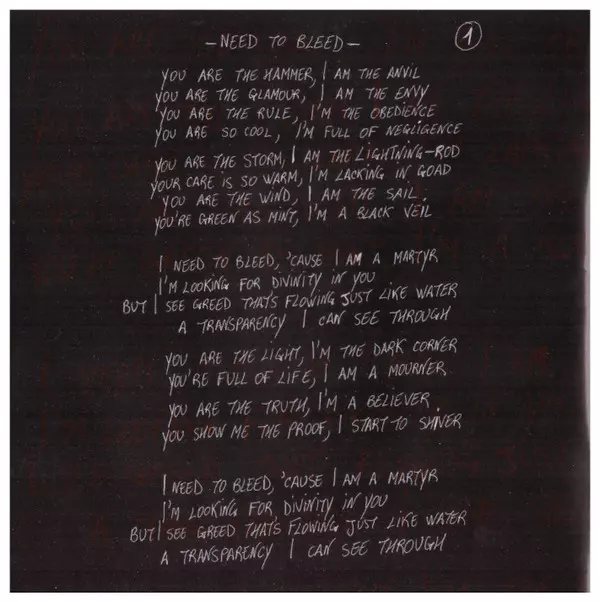 - NEED TO BLEED -
1
YOU ARE THE HAMMER, I AM THE ANVIL
YOU ARE THE GLAMOUR, I AM THE ENVY
YOU ARE THE RULE, I'M THE OBEDIENCE
YOU ARE SO COOL, I'M FULL OF NEGLIGENCE
YOU ARE THE STORM, I AM THE LIGHTNING-ROD
YOUR CARE IS SO WARM, I'M LACKING IN GOAD
YOU ARE THE WIND, I AM THE SAIL.
YOU'RE GREEN AS MINT, I'M A BLACK VEIL
I NEED TO BLEED, 'CAUSE I AM A MARTYR
I'M LOOKING FOR DIVINITY IN YOU
BUT I SEE GREED THAT'S FLOWING JUST LIKE WATER
A TRANSPARENCY I CAN SEE THROUGH
YOU ARE THE LIGHT, I'M THE DARK CORNER
YOU'RE FULL OF LIFE, I AM A MOURNER
YOU ARE THE TRUTH, I'M A BELIEVER.
YOU SHOW ME THE PROOF, I START TO SHIVER
I NEED TO BLEED, 'CAUSE I AM A MARTYR
I'M LOOKING FOR DIVINITY IN YOU
BUT I SEE GREED THAT'S FLOWING JUST LIKE WATER
A TRANSPARENCY I CAN SEE THROUGH